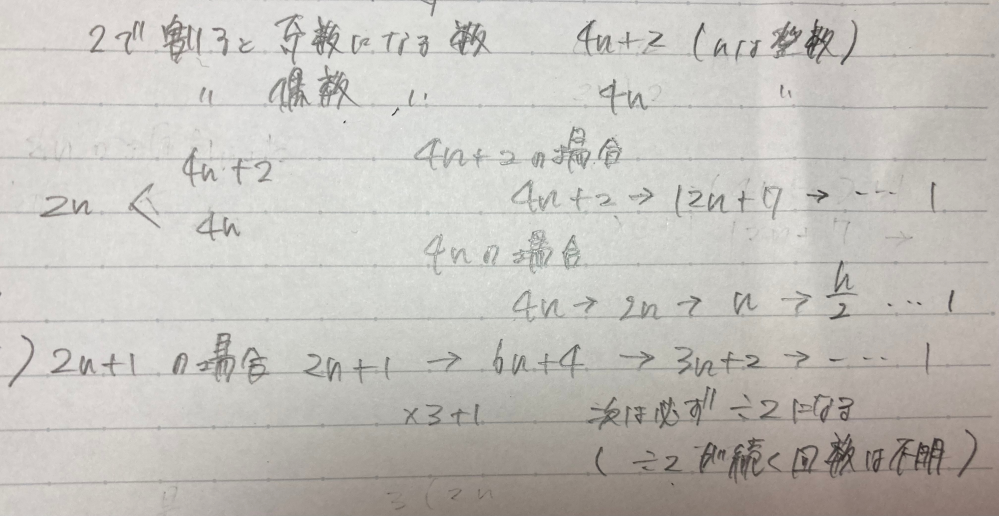 2で割ると奇数になる数 4n+2 (nは整数)
〃 偶数 〃 4n 〃
2n < 4n+2
4n
4n+2の場合
4n+2 → 12n+7 → … 1
4nの場合
4n → 2n → n → n/2 … 1
) 2n+1の場合 2n+1 → 6n+4 → 3n+2 → … 1
×3+1 次は必ず÷2になる
(÷2が続く回数は不明)